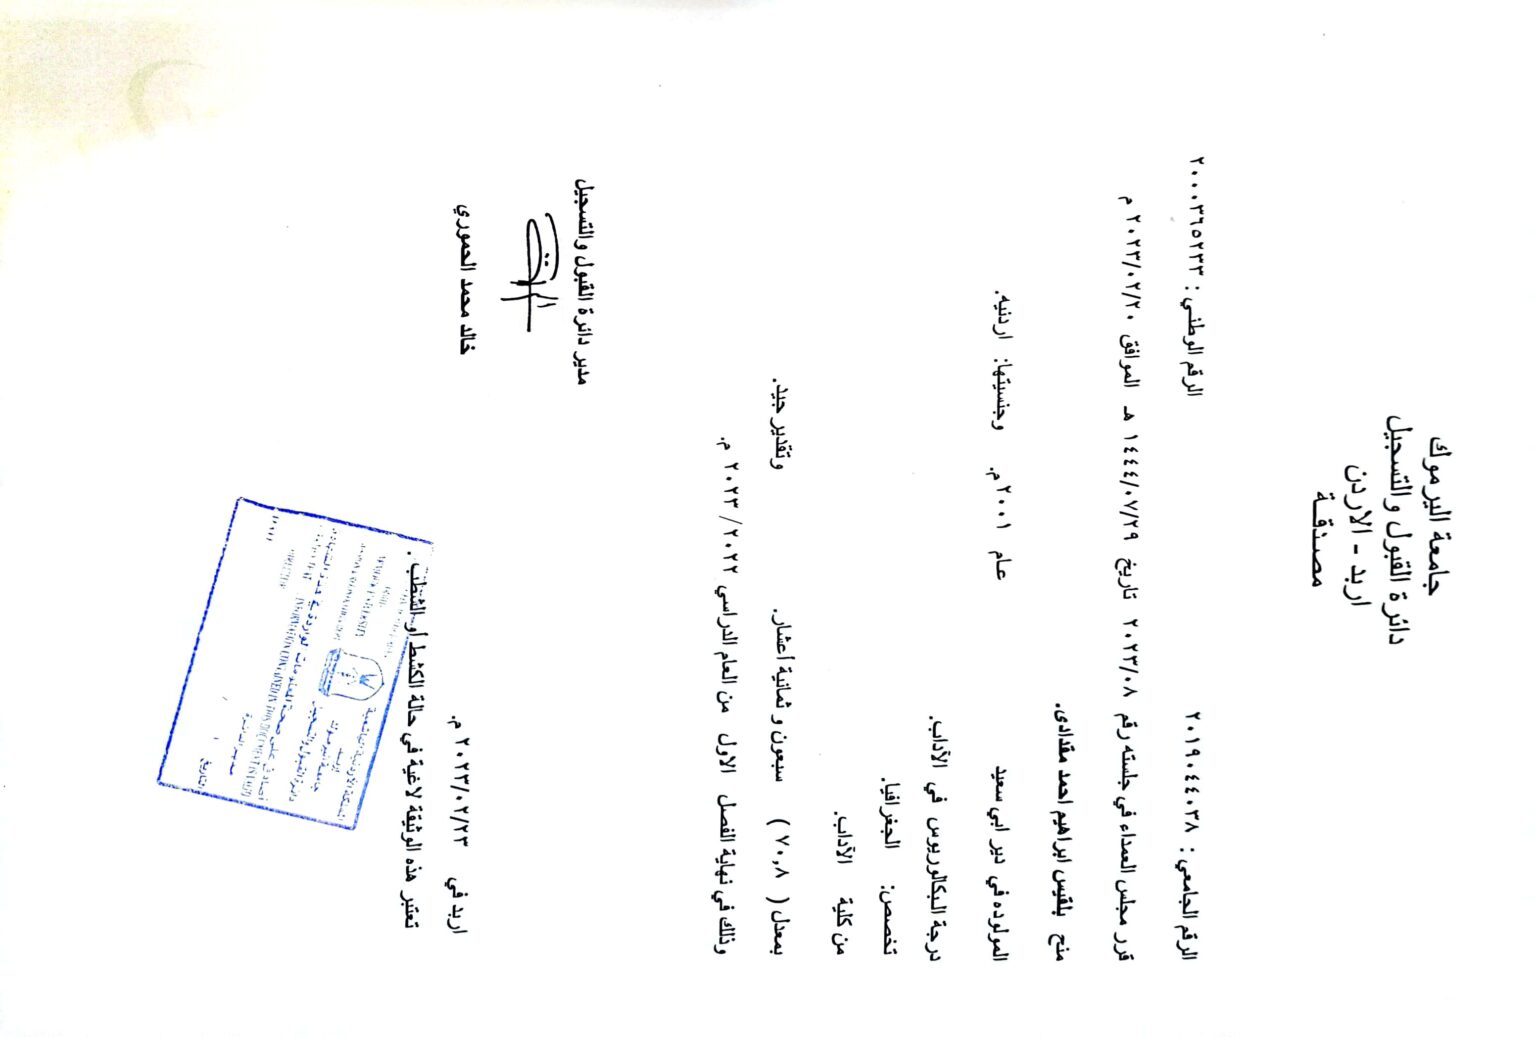 جامعة اليرموك
دائرة القبول والتسجيل
اربد - الاردن
مصدقة
الرقم الجامعي : ٢٠١٩٠٤٤٠٣٨ الرقم الوطني : ٢٠٠٠٣٦٥٢٣٣
قرر مجلس العمداء في جلسته رقم ٢٠٢٣/٠٨ تاريخ ١٤٤٤/٠٧/٢٩ هـ الموافق ٢٠٢٣/٠٢/٢٠ م
منح بلقيس ابراهيم احمد مقدادى.
المولوده في دير ابي سعيد عام ٢٠٠١ م. وجنسيتها: اردنيه.
درجة البكالوريوس في الآداب.
تخصص: الجغرافيا.
من كلية الآداب.
بمعدل ( ٧٠,٨ ) سبعون و ثمانية أعشار. وتقدير جيد.
وذلك في نهاية الفصل الاول من العام الدراسي ٢٠٢٢ / ٢٠٢٣ م.
مدير دائرة القبول والتسجيل
خالد محمد الحموري
اربد في ٢٠٢٣/٠٢/٢٣ م.
تعتبر هذه الوثيقة لاغية في حالة الكشط أو الشطب .
المملكة الأردنية الهاشمية
جامعة اليرموك
دائرة القبول والتسجيل